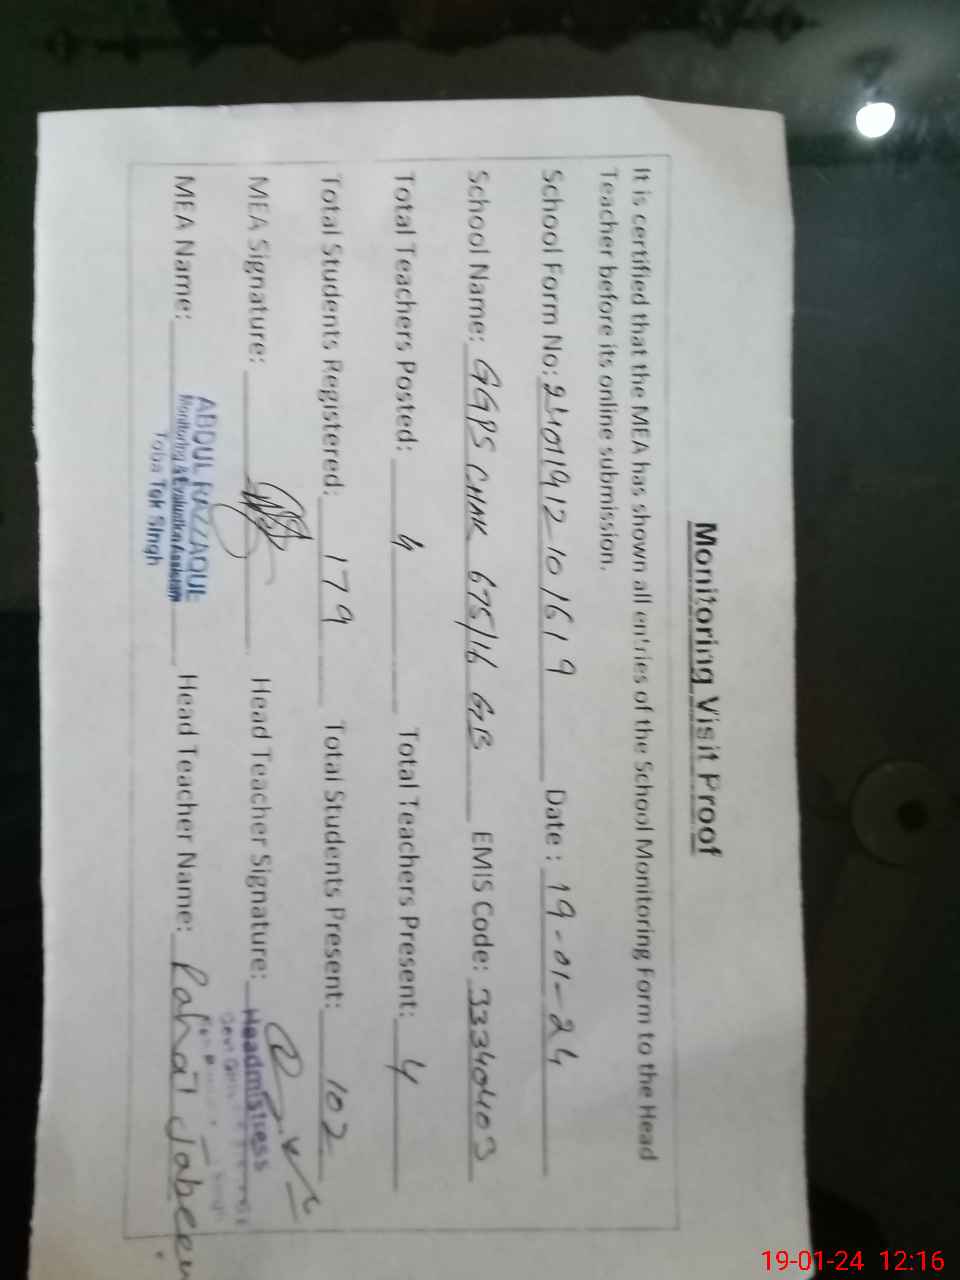 Monitoring Visit Proof
It is certified that the MEA has shown all entries of the School Monitoring Form to the Head
Teacher before its online submission.
School Form No: 2401912101619 Date : 19-01-24
School Name: GGPS CHAK 675/16 GB EMIS Code: 33340403
Total Teachers Posted: 4 Total Teachers Present: 4
Total Students Registered: 179 Total Students Present: 102
MEA Signature: Head Teacher Signature:
Headmistress
MEA Name: Head Teacher Name: Rahat Jabeen
ABDUL RAZZAQUE
Monitoring & Evaluation Assistant
Toba Tek Singh
19-01-24 12:16